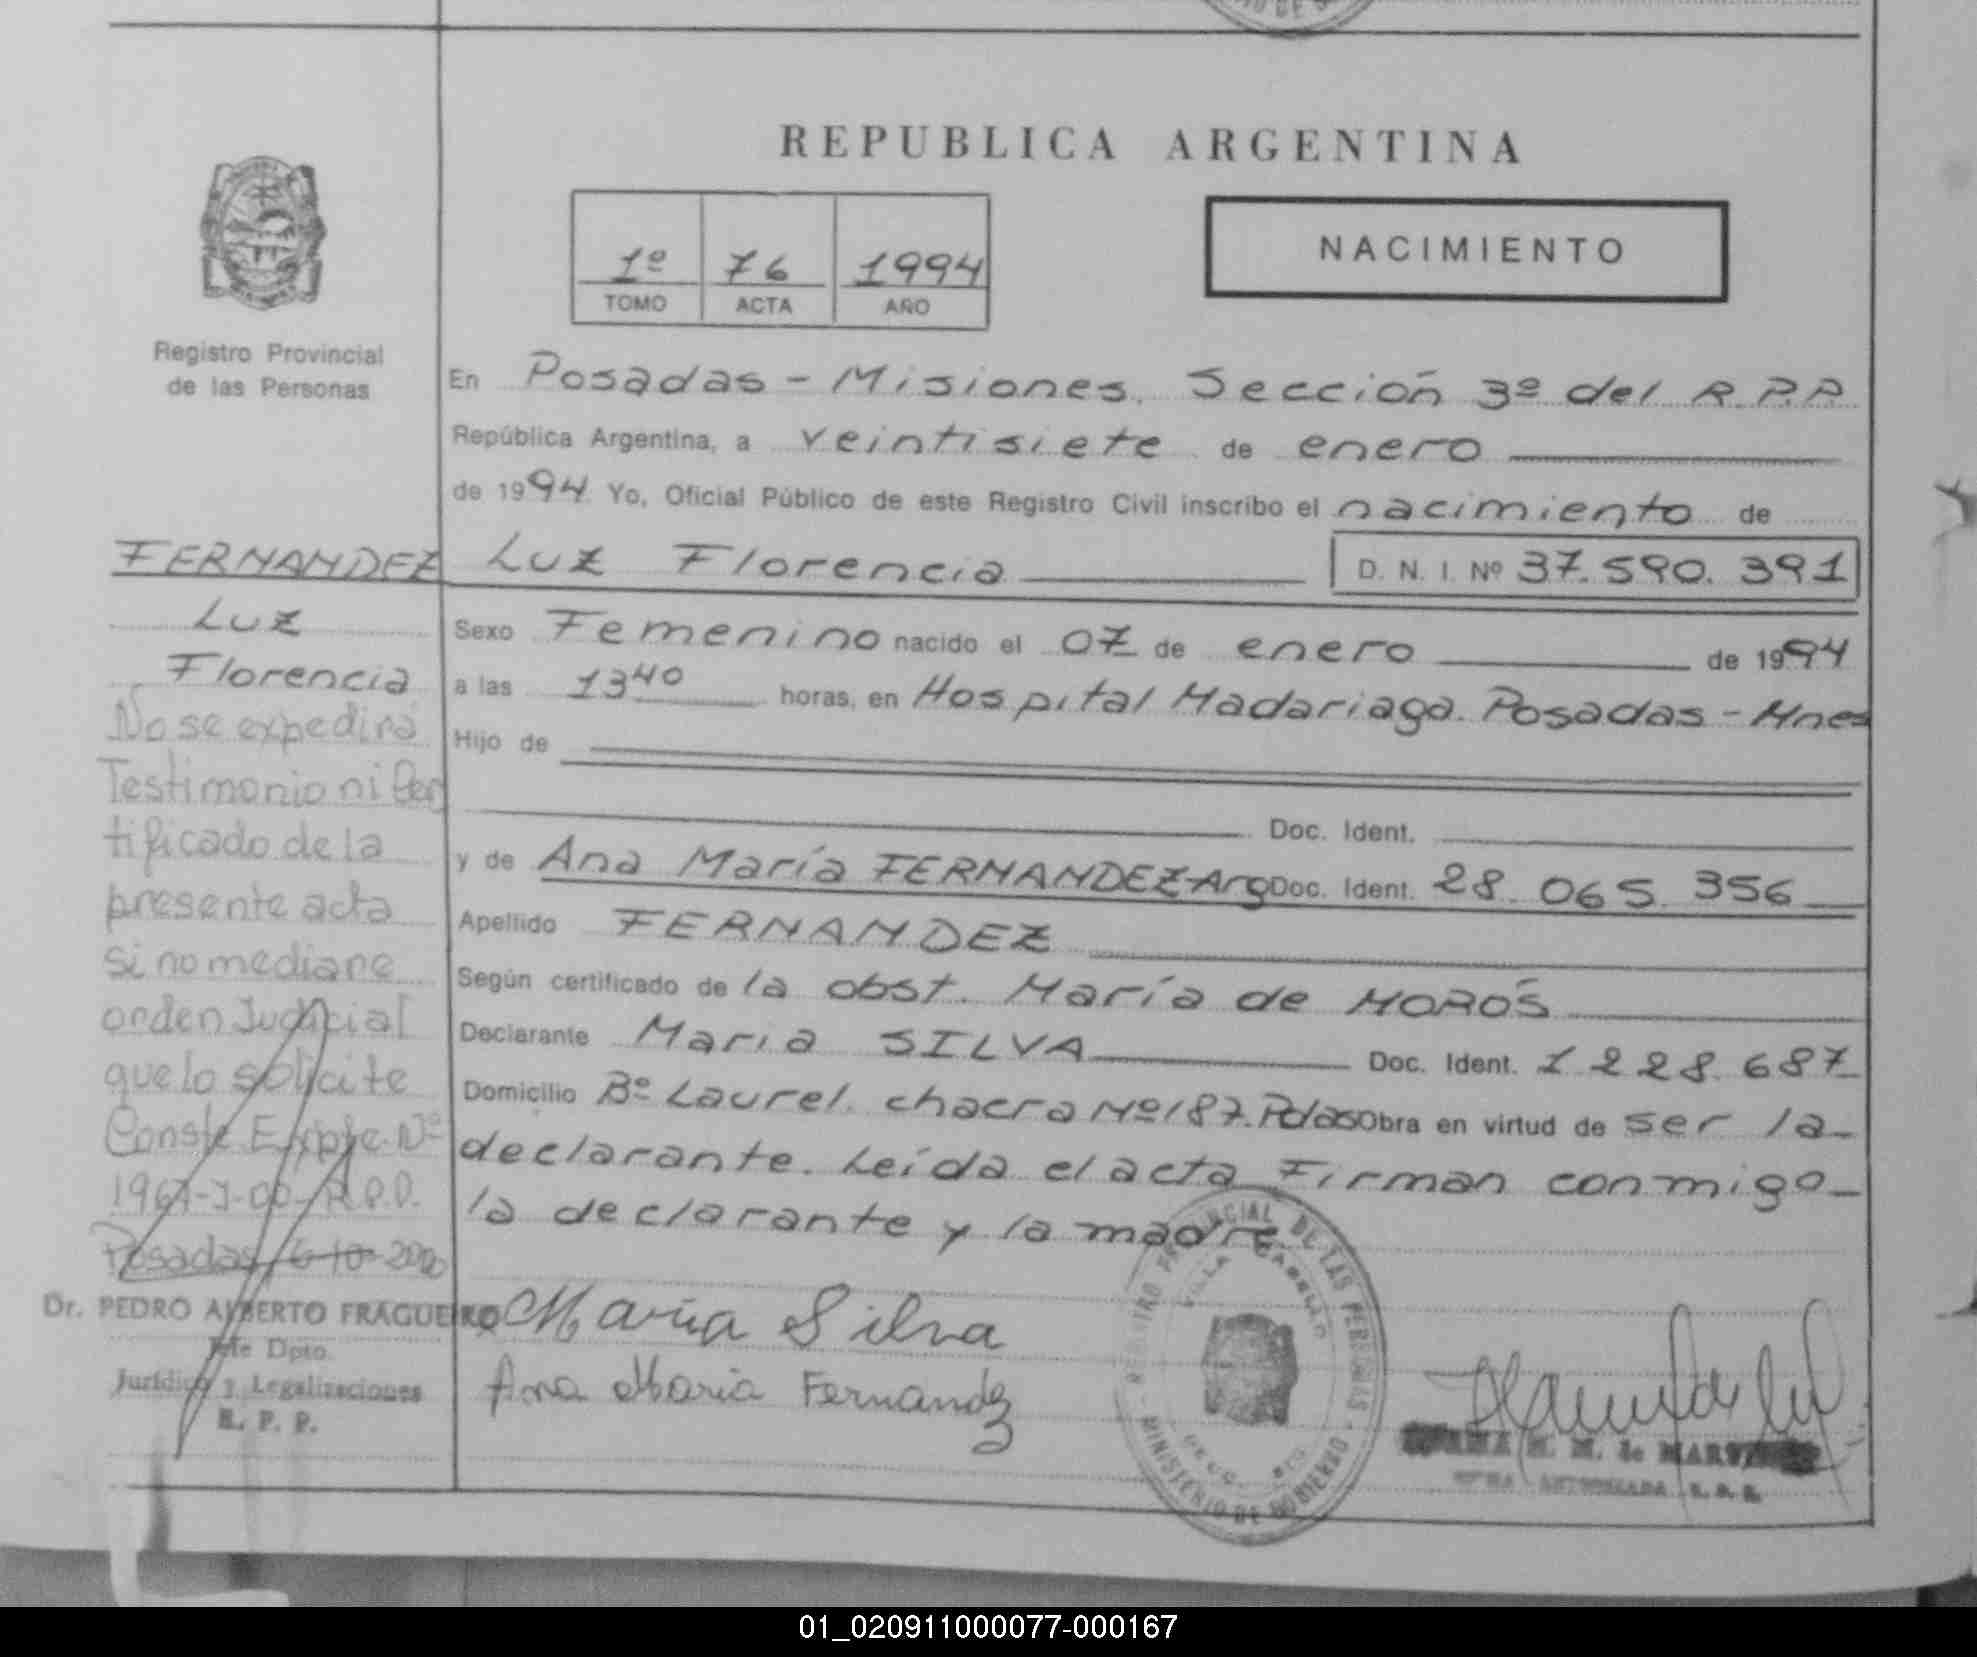 REPUBLICA ARGENTINA
NACIMIENTO
1º 76 1994
TOMO ACTA AÑO
Registro Provincial
de las Personas
En Posadas - Misiones. Sección 3º del R.P.P.
República Argentina, a veintisiete de enero
de 1994 Yo, Oficial Público de este Registro Civil inscribo el nacimiento de
Luz Florencia D. N. I. Nº 37.590.391
Sexo Femenino nacido el 07 de enero de 1994
a las 13 40 horas, en Hospital Madariaga. Posadas - Mnes
Hijo de
Doc. Ident.
y de Ana María FERNANDEZ-Arg Doc. Ident. 28.065.356
Apellido FERNANDEZ
Según certificado de la obst. María de MOROS
Declarante Maria SILVA Doc. Ident. 1.228.687
Domicilio Bº Laurel. chacra Nº 187. Pdas Obra en virtud de ser la
declarante. Leída el acta Firman conmigo
la declarante y la madre
FERNANDEZ
Luz
Florencia
No se expedirá
Testimonio ni Cer
tificado de la
presente acta
si no mediane
orden Judicial
que lo solicite
Conste Expte. Nº
1967-J-00-R.P.P.
Posadas, 6-10-2000
Dr. PEDRO ALBERTO FRAGUEIRO
Jefe Dpto.
Jurídico y Legalizaciones
R. P. P.
María Silva
Ana Maria Fernandez
REGISTRO PROVINCIAL DE LAS PERSONAS
VILLA CABELLO
MINISTERIO DE GOBIERNO
M. de
R. P. P.
01_020911000077-000167